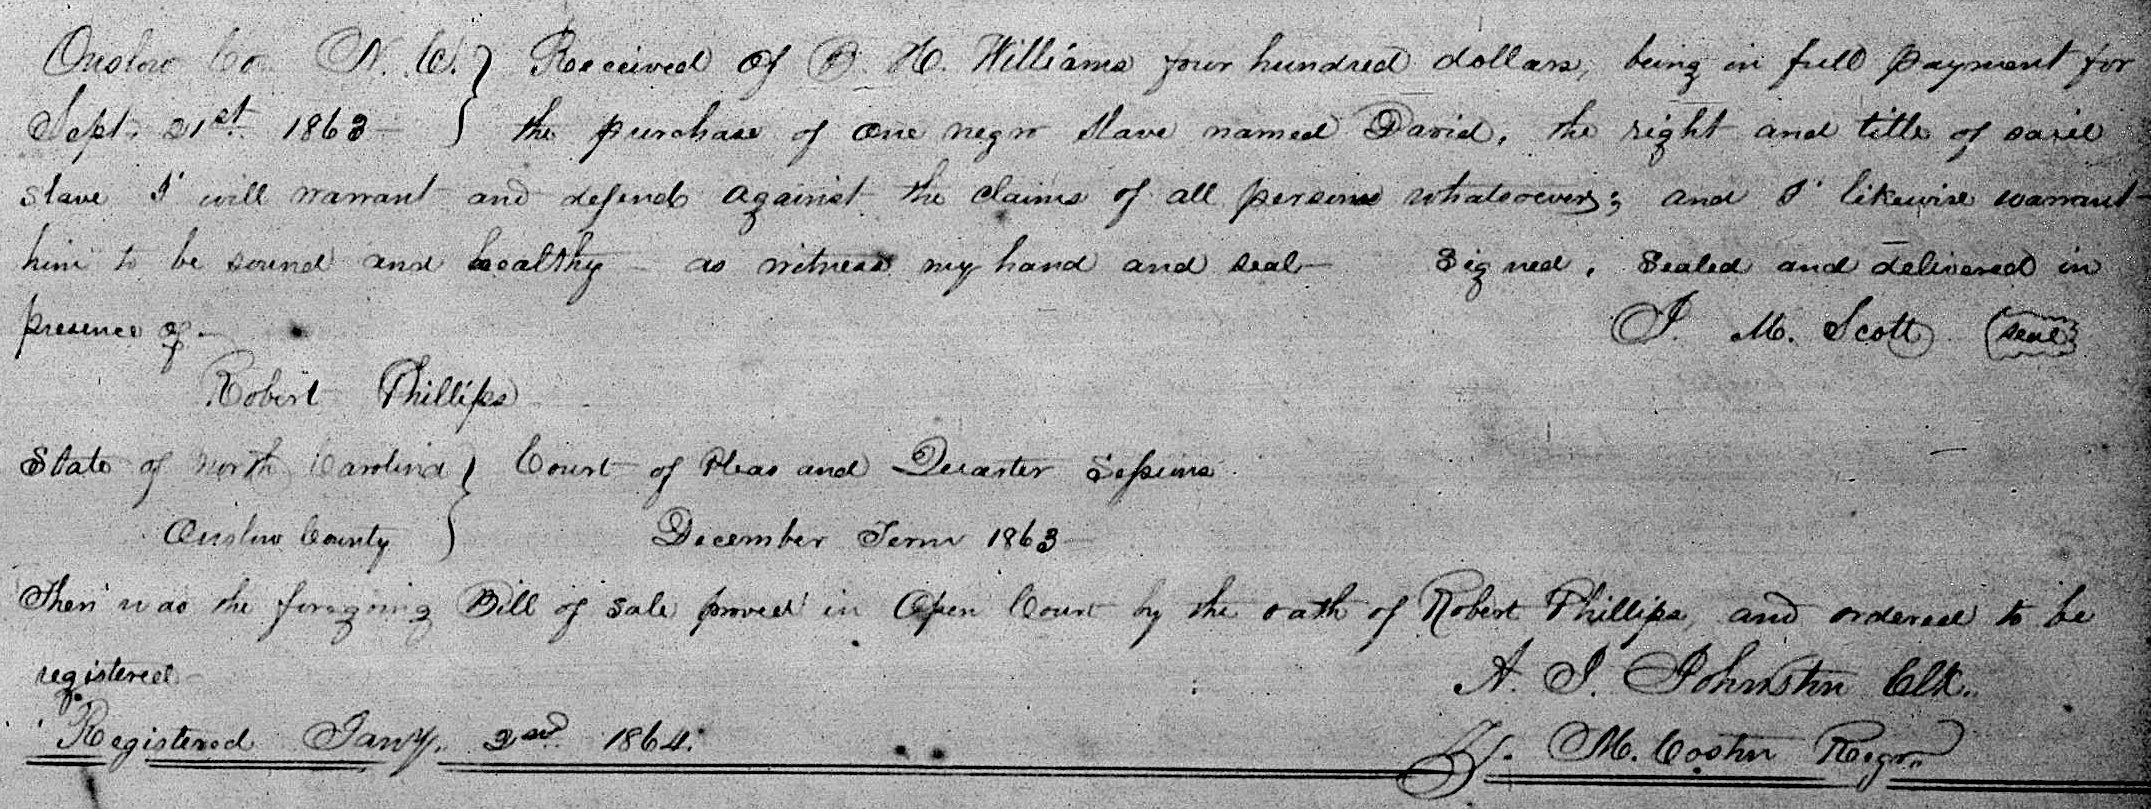 Onslow Co. N. C. } Received of B. H. Williams four hundred dollars, being in full payment for
Sept. 21st 1863 } the purchase of one negro slave named David, the right and title of said
slave I will warrant and defend against the claims of all persons whatsoever; and I likewise warrant
him to be sound and healthy – as witness my hand and seal – Signed, Sealed and delivered in
presence of – J. M. Scott (seal)
Robert Phillips
State of North Carolina } Court of Pleas and Quarter Sessions
Onslow County } December Term 1863
Then was the foregoing Bill of Sale proved in Open Court by the oath of Robert Phillips, and ordered to be
registered – A. J. Johnston Clk.
Registered Jany. 2nd 1864. M. Costin Regr.